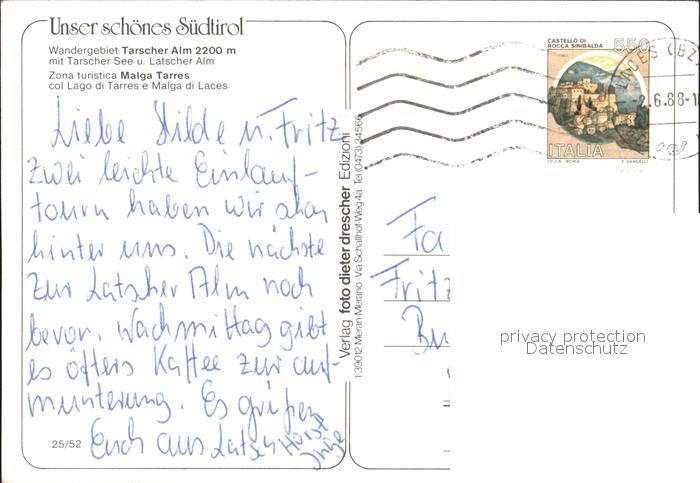 Unser schönes Südtirol
Wandergebiet Tarscher Alm 2200 m
mit Tarscher See u. Latscher Alm
Zona turistica Malga Tarres
col Lago di Tarres e Malga di Laces
Liebe Hilde u. Fritz
zwei leichte Einlauf-
touren haben wir schon
hinter uns. Die nächste
zur Latscher Alm noch
bevor. Nachmittag gibt
es öfters Kaffee zur auf-
munterung. Es grüßen
Euch aus Latsch Horst
Inge
25/52
Verlag foto dieter drescher Edizioni
I-39012 Meran Merano · Via Schallhof Weg 4a · Tel (0473) 34566
CASTELLO DI
ROCCA SINIBALDA
550
ITALIA
I.P.Z.S. ROMA E. VANGELLI
LACES (BZ)
2.6.88-1
Fa
Fritz
Bu
privacy protection
Datenschutz